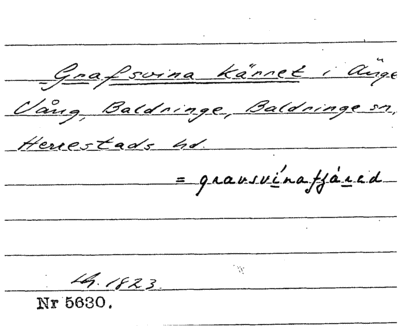 Grafsvina Kärret i Änge
Vång, Baldringe, Baldringe sn,
Herrestads hd.
= gravsvinafjäred
Lh. 1823.
Nr 5630.